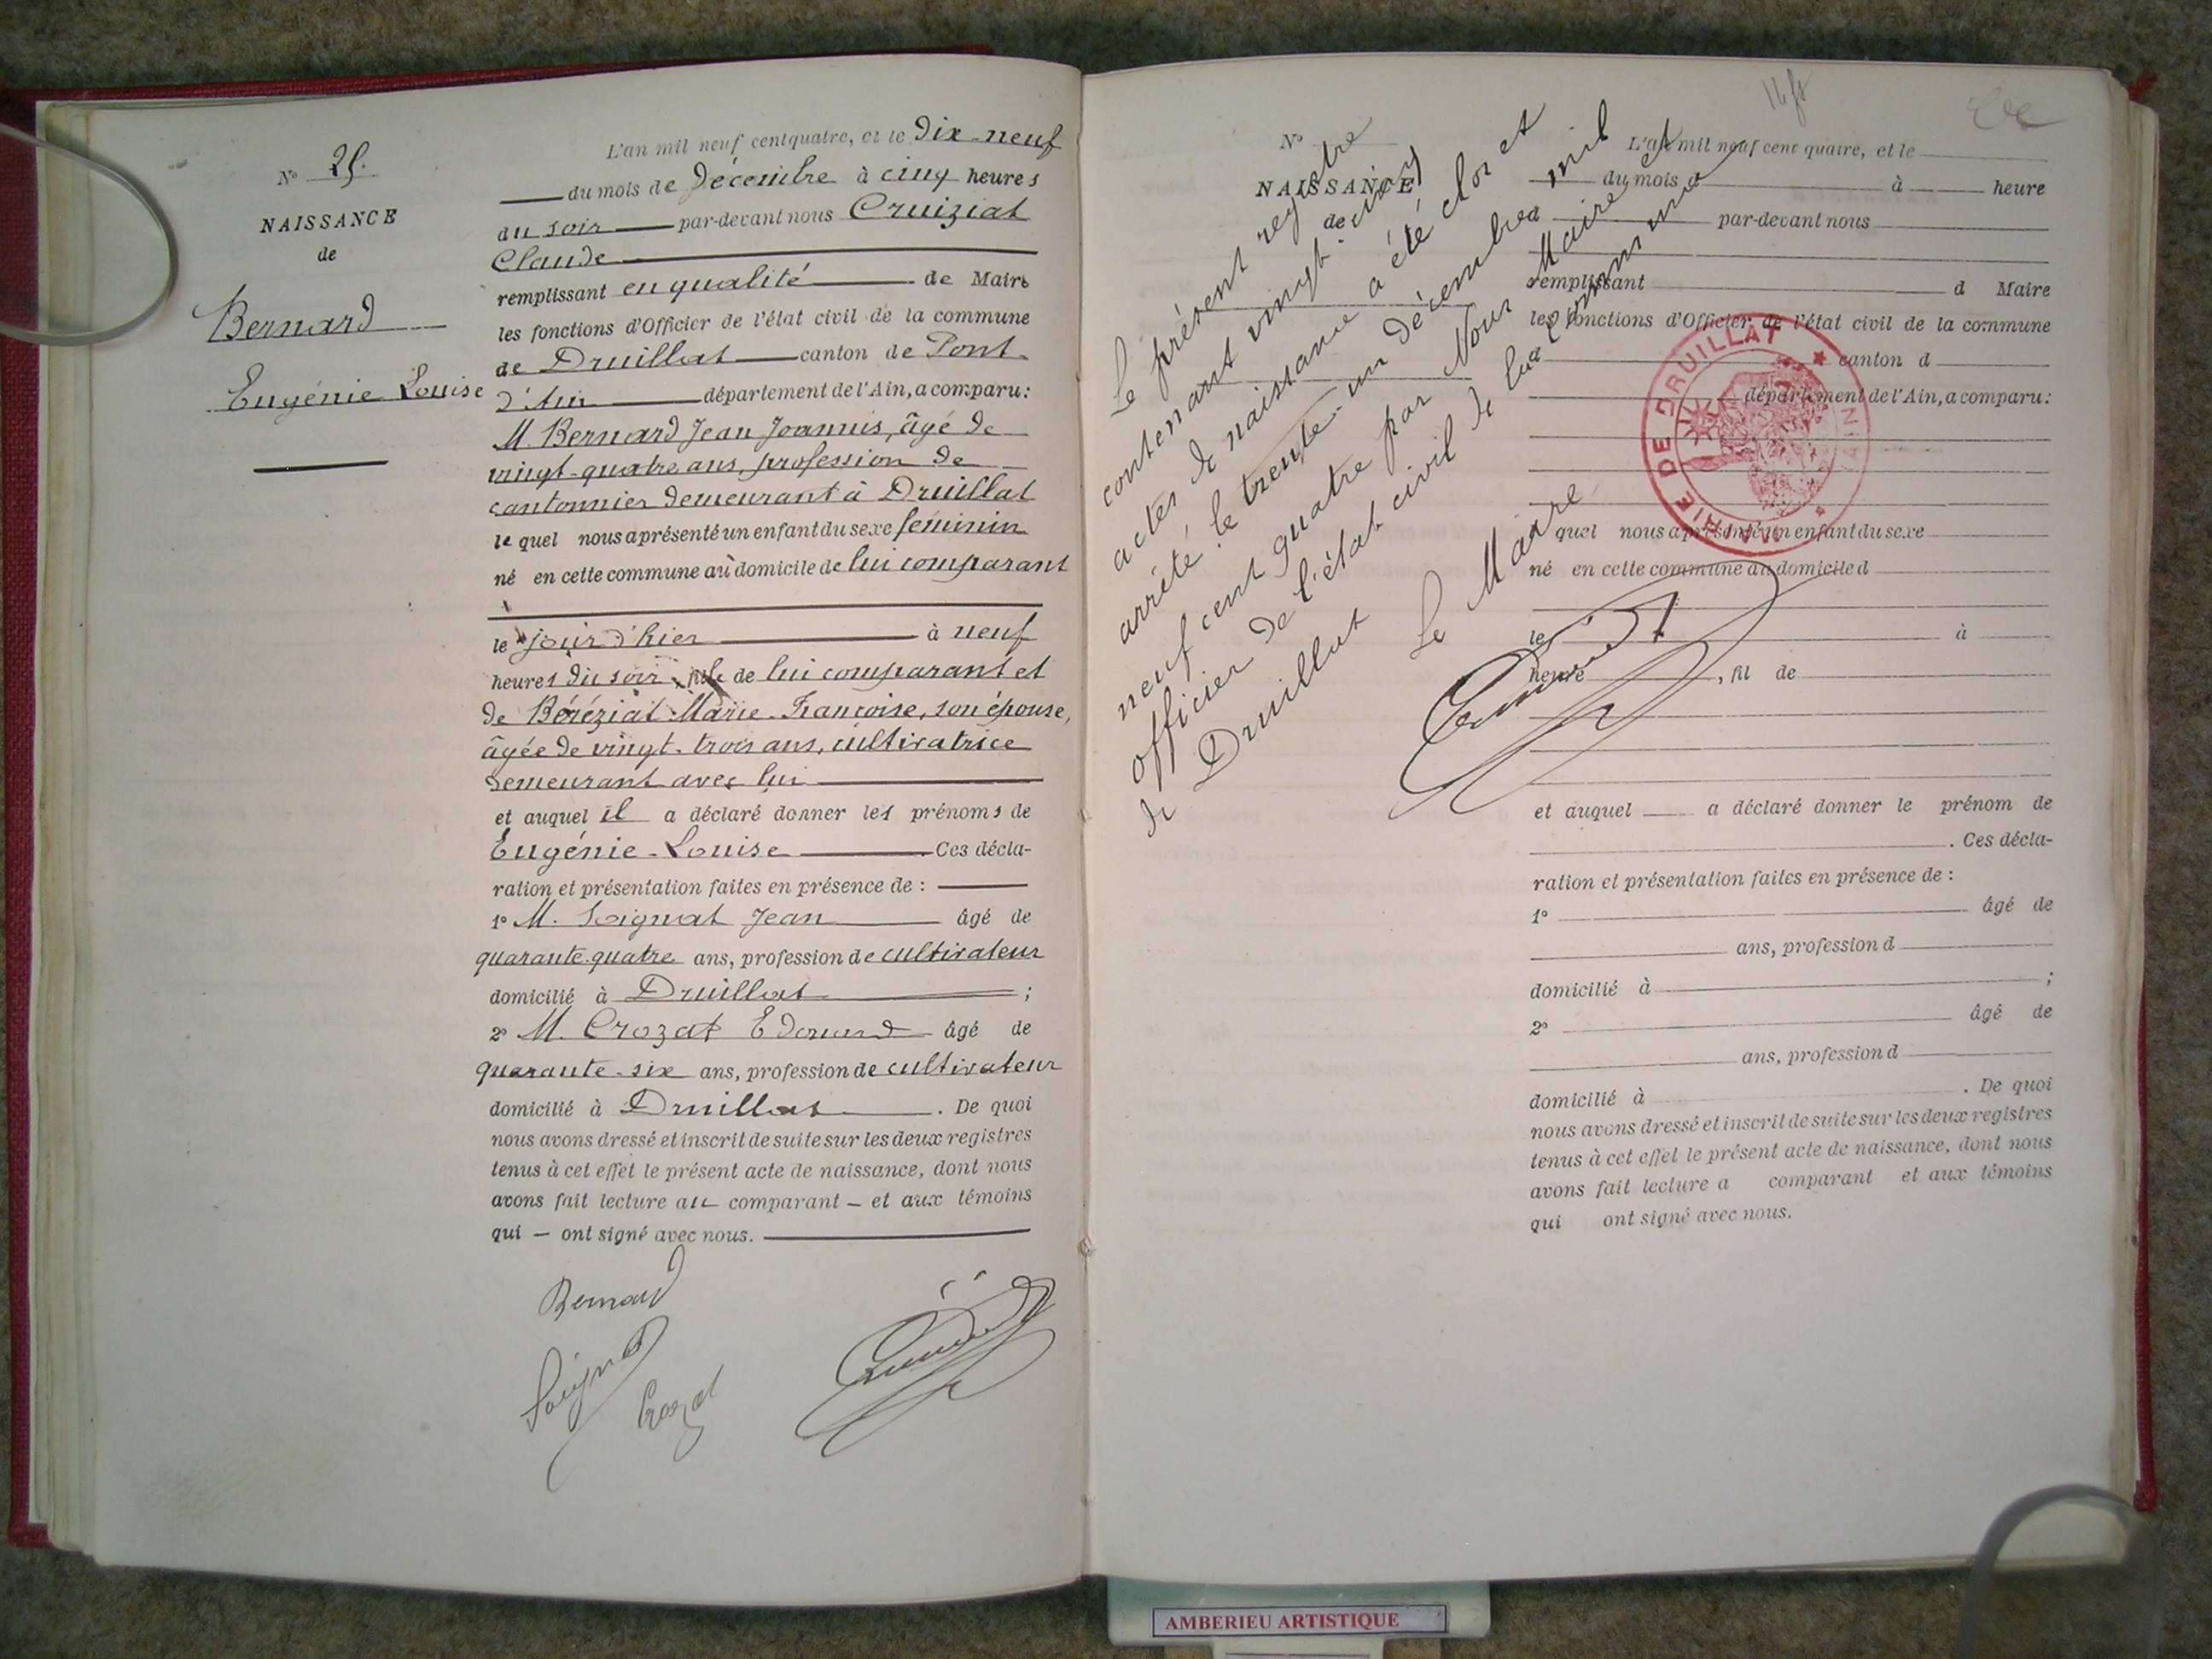 N° 25.
NAISSANCE
de
Bernard
Eugénie Louise
L'an mil neuf cent quatre, et le dix-neuf
du mois de décembre à cinq heures
du soir par-devant nous Cruiziat
Claude
remplissant en qualité de Maire
les fonctions d'Officier de l'état civil de la commune
de Druillat canton de Pont
d'Ain département de l'Ain, a comparu:
M. Bernard Jean Joannis, âgé de
vingt-quatre ans, profession de
cantonnier demeurant à Druillat
le quel nous a présenté un enfant du sexe féminin
né en cette commune au domicile de lui comparant
le jour d'hier à neuf
heures du soir, fille de lui comparant et
de Béréziat Marie-Françoise, son épouse,
âgée de vingt-trois ans, cultivatrice
demeurant avec lui
et auquel il a déclaré donner les prénoms de
Eugénie-Louise Ces décla-
ration et présentation faites en présence de :
1° M. Soignat Jean âgé de
quarante-quatre ans, profession de cultivateur
domicilié à Druillat ;
2° M. Crozat Edouard âgé de
quarante-six ans, profession de cultivateur
domicilié à Druillat . De quoi
nous avons dressé et inscrit de suite sur les deux registres
tenus à cet effet le présent acte de naissance, dont nous
avons fait lecture au comparant - et aux témoins
qui - ont signé avec nous.
Bernard
Soignat
Crozat
N°
NAISSANCE
de
Le présent registre
contenant vingt-cinq
actes de naissance a été clos et
arrêté le trente-un décembre mil
neuf cent quatre par Nous Maire et
officier de l'état civil de la commune
de Druillat
Le Maire
L'an mil neuf cent quatre, et le
du mois d à heure
d par-devant nous
remplissant d Maire
les fonctions d'Officier de l'état civil de la commune
d canton d
département de l'Ain, a comparu:
MAIRIE DE DRUILLAT
quel nous a présenté un enfant du sexe
né en cette commune au domicile d
le à
heure , fil de
et auquel a déclaré donner le prénom de
. Ces décla-
ration et présentation faites en présence de :
1° âgé de
ans, profession d
domicilié à ;
2° âgé de
ans, profession d
domicilié à . De quoi
nous avons dressé et inscrit de suite sur les deux registres
tenus à cet effet le présent acte de naissance, dont nous
avons fait lecture a comparant et aux témoins
qui ont signé avec nous.
AMBERIEU ARTISTIQUE